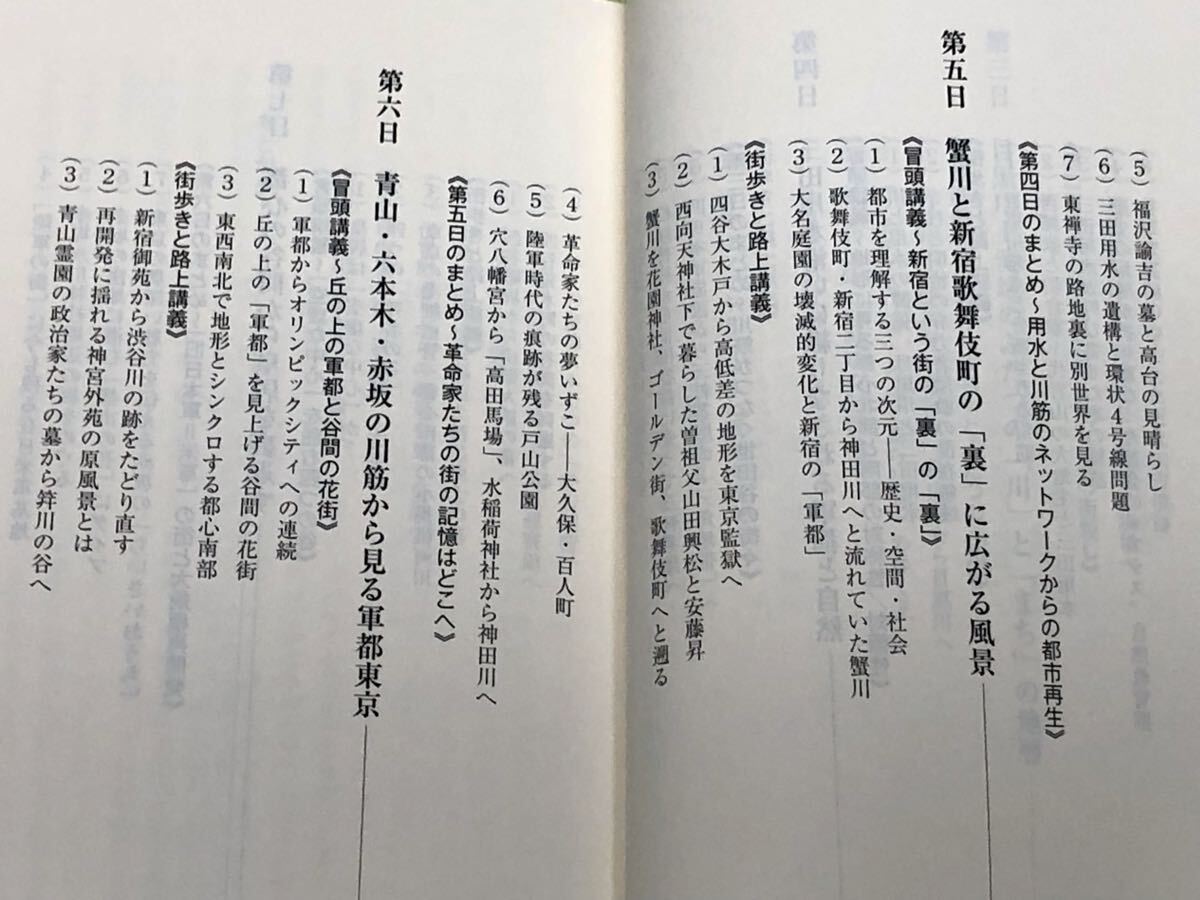 (5) 福沢諭吉の墓と高台の見晴らし
(6) 三田用水の遺構と環状4号線問題
(7) 東禅寺の路地裏に別世界を見る
《第四日のまとめ～用水と川筋のネットワークからの都市再生》
第五日 蟹川と新宿歌舞伎町の「裏」に広がる風景
《冒頭講義～新宿という街の「裏」の「裏」》
(1) 都市を理解する三つの次元――歴史・空間・社会
(2) 歌舞伎町・新宿二丁目から神田川へと流れていた蟹川
(3) 大名庭園の壊滅的変化と新宿の「軍都」
《街歩きと路上講義》
(1) 四谷大木戸から高低差の地形を東京監獄へ
(2) 西向天神社下で暮らした曽祖父山田興松と安藤昇
(3) 蟹川を花園神社、ゴールデン街、歌舞伎町へと遡る
(4) 革命家たちの夢いずこ――大久保・百人町
(5) 陸軍時代の痕跡が残る戸山公園
(6) 穴八幡宮から「高田馬場」、水稲荷神社から神田川へ
《第五日のまとめ～革命家たちの街の記憶はどこへ》
第六日 青山・六本木・赤坂の川筋から見る軍都東京
《冒頭講義～丘の上の軍都と谷間の花街》
(1) 軍都からオリンピックシティへの連続
(2) 丘の上の「軍都」を見上げる谷間の花街
(3) 東西南北で地形とシンクロする都心南部
《街歩きと路上講義》
(1) 新宿御苑から渋谷川の跡をたどり直す
(2) 再開発に揺れる神宮外苑の原風景とは
(3) 青山霊園の政治家たちの墓から笄川の谷へ